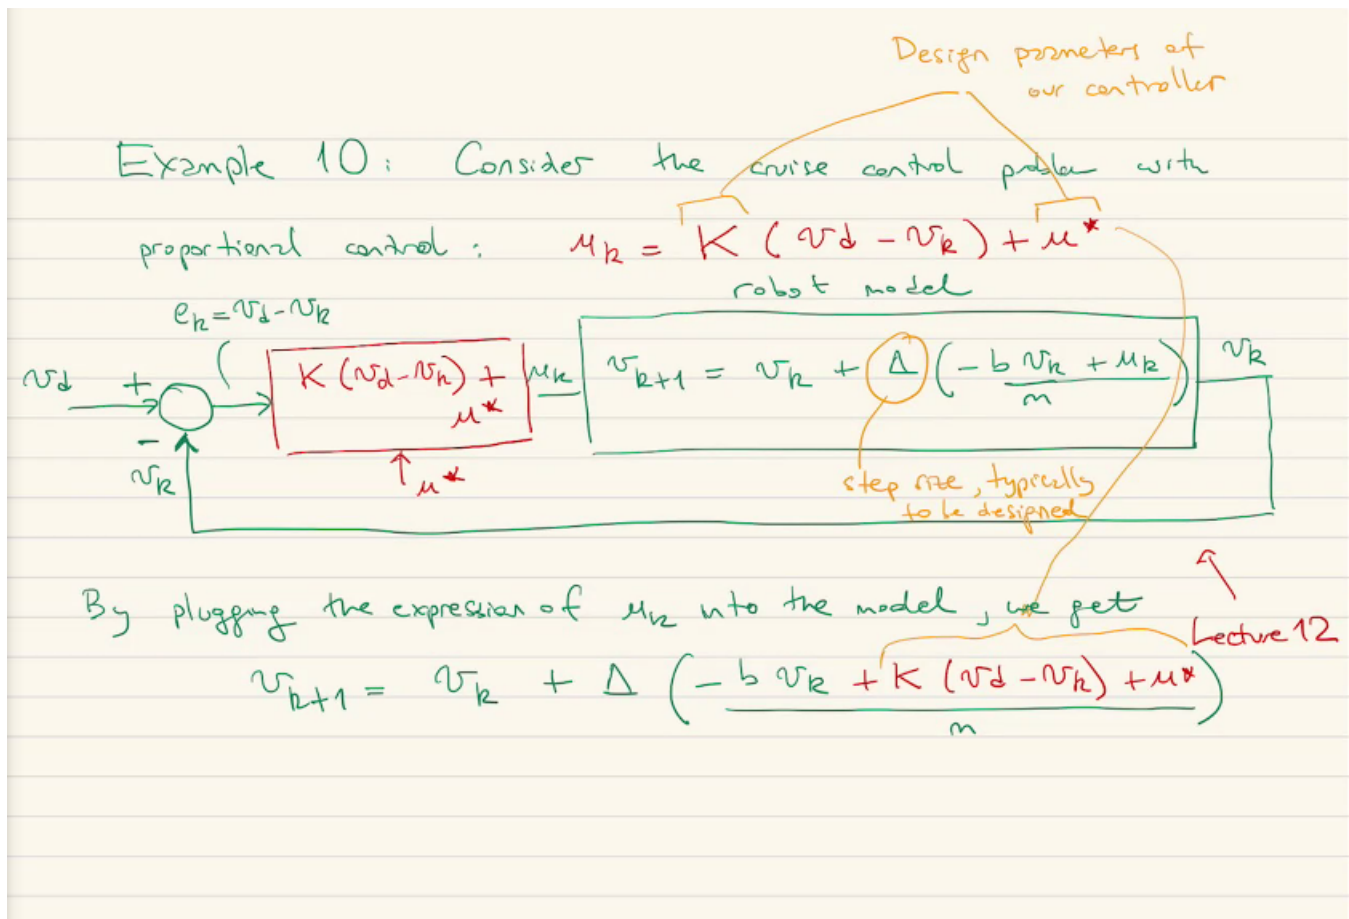 Design parameters of
our controller
Example 10: Consider the cruise control problem with
proportional control: u_k = K (v_d - v_k) + u*
robot model
e_k = v_d - v_k
v_d + K (v_d - v_k) + u* u_k v_{k+1} = v_k + Δ ((-b v_k + u_k)/m) v_k
- v_k
u*
step size, typically
to be designed
By plugging the expression of u_k into the model, we get
Lecture 12
v_{k+1} = v_k + Δ ((-b v_k + K (v_d - v_k) + u*)/m)